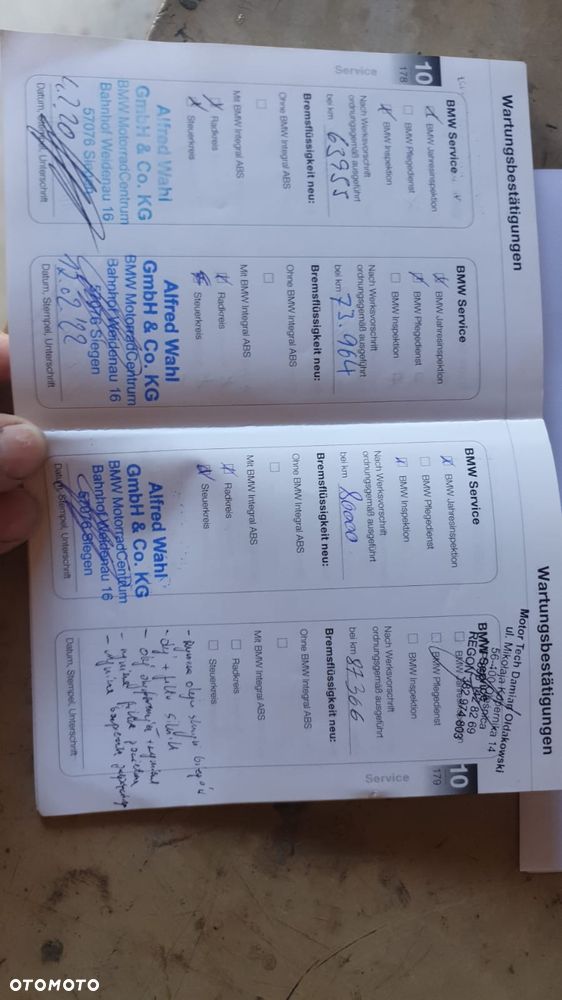 Wartungsbestätigungen
10
178
Service
BMW Service
BMW Jahresinspektion
BMW Pflegedienst
BMW Inspektion
Nach Werksvorschrift
ordnungsgemäß ausgeführt
bei km 63955
Bremsflüssigkeit neu:
Ohne BMW Integral ABS
Mit BMW Integral ABS
Radkreis
Steuerkreis
Alfred Wahl
GmbH & Co. KG
BMW MotorradCentrum
Bahnhof Weidenau 16
57076 Siegen
Datum, Stempel, Unterschrift
BMW Service
BMW Jahresinspektion
BMW Pflegedienst
BMW Inspektion
Nach Werksvorschrift
ordnungsgemäß ausgeführt
bei km 73.964
Bremsflüssigkeit neu:
Ohne BMW Integral ABS
Mit BMW Integral ABS
Radkreis
Steuerkreis
Alfred Wahl
GmbH & Co. KG
BMW MotorradCentrum
Bahnhof Weidenau 16
57076 Siegen
Datum, Stempel, Unterschrift
Wartungsbestätigungen
BMW Service
BMW Jahresinspektion
BMW Pflegedienst
BMW Inspektion
Nach Werksvorschrift
ordnungsgemäß ausgeführt
bei km 80000
Bremsflüssigkeit neu:
Ohne BMW Integral ABS
Mit BMW Integral ABS
Radkreis
Steuerkreis
Alfred Wahl
GmbH & Co. KG
BMW MotorradCentrum
Bahnhof Weidenau 16
57076 Siegen
Datum, Stempel, Unterschrift
Motor Tech Damian
ul. Mikołaja Kopernika 14
BMW Service
BMW Pflegedienst
BMW Inspektion
Nach Werksvorschrift
ordnungsgemäß ausgeführt
bei km 87366
Bremsflüssigkeit neu:
Ohne BMW Integral ABS
Mit BMW Integral ABS
Radkreis
Steuerkreis
Datum, Stempel, Unterschrift
Service
10
179
OTOMOTO